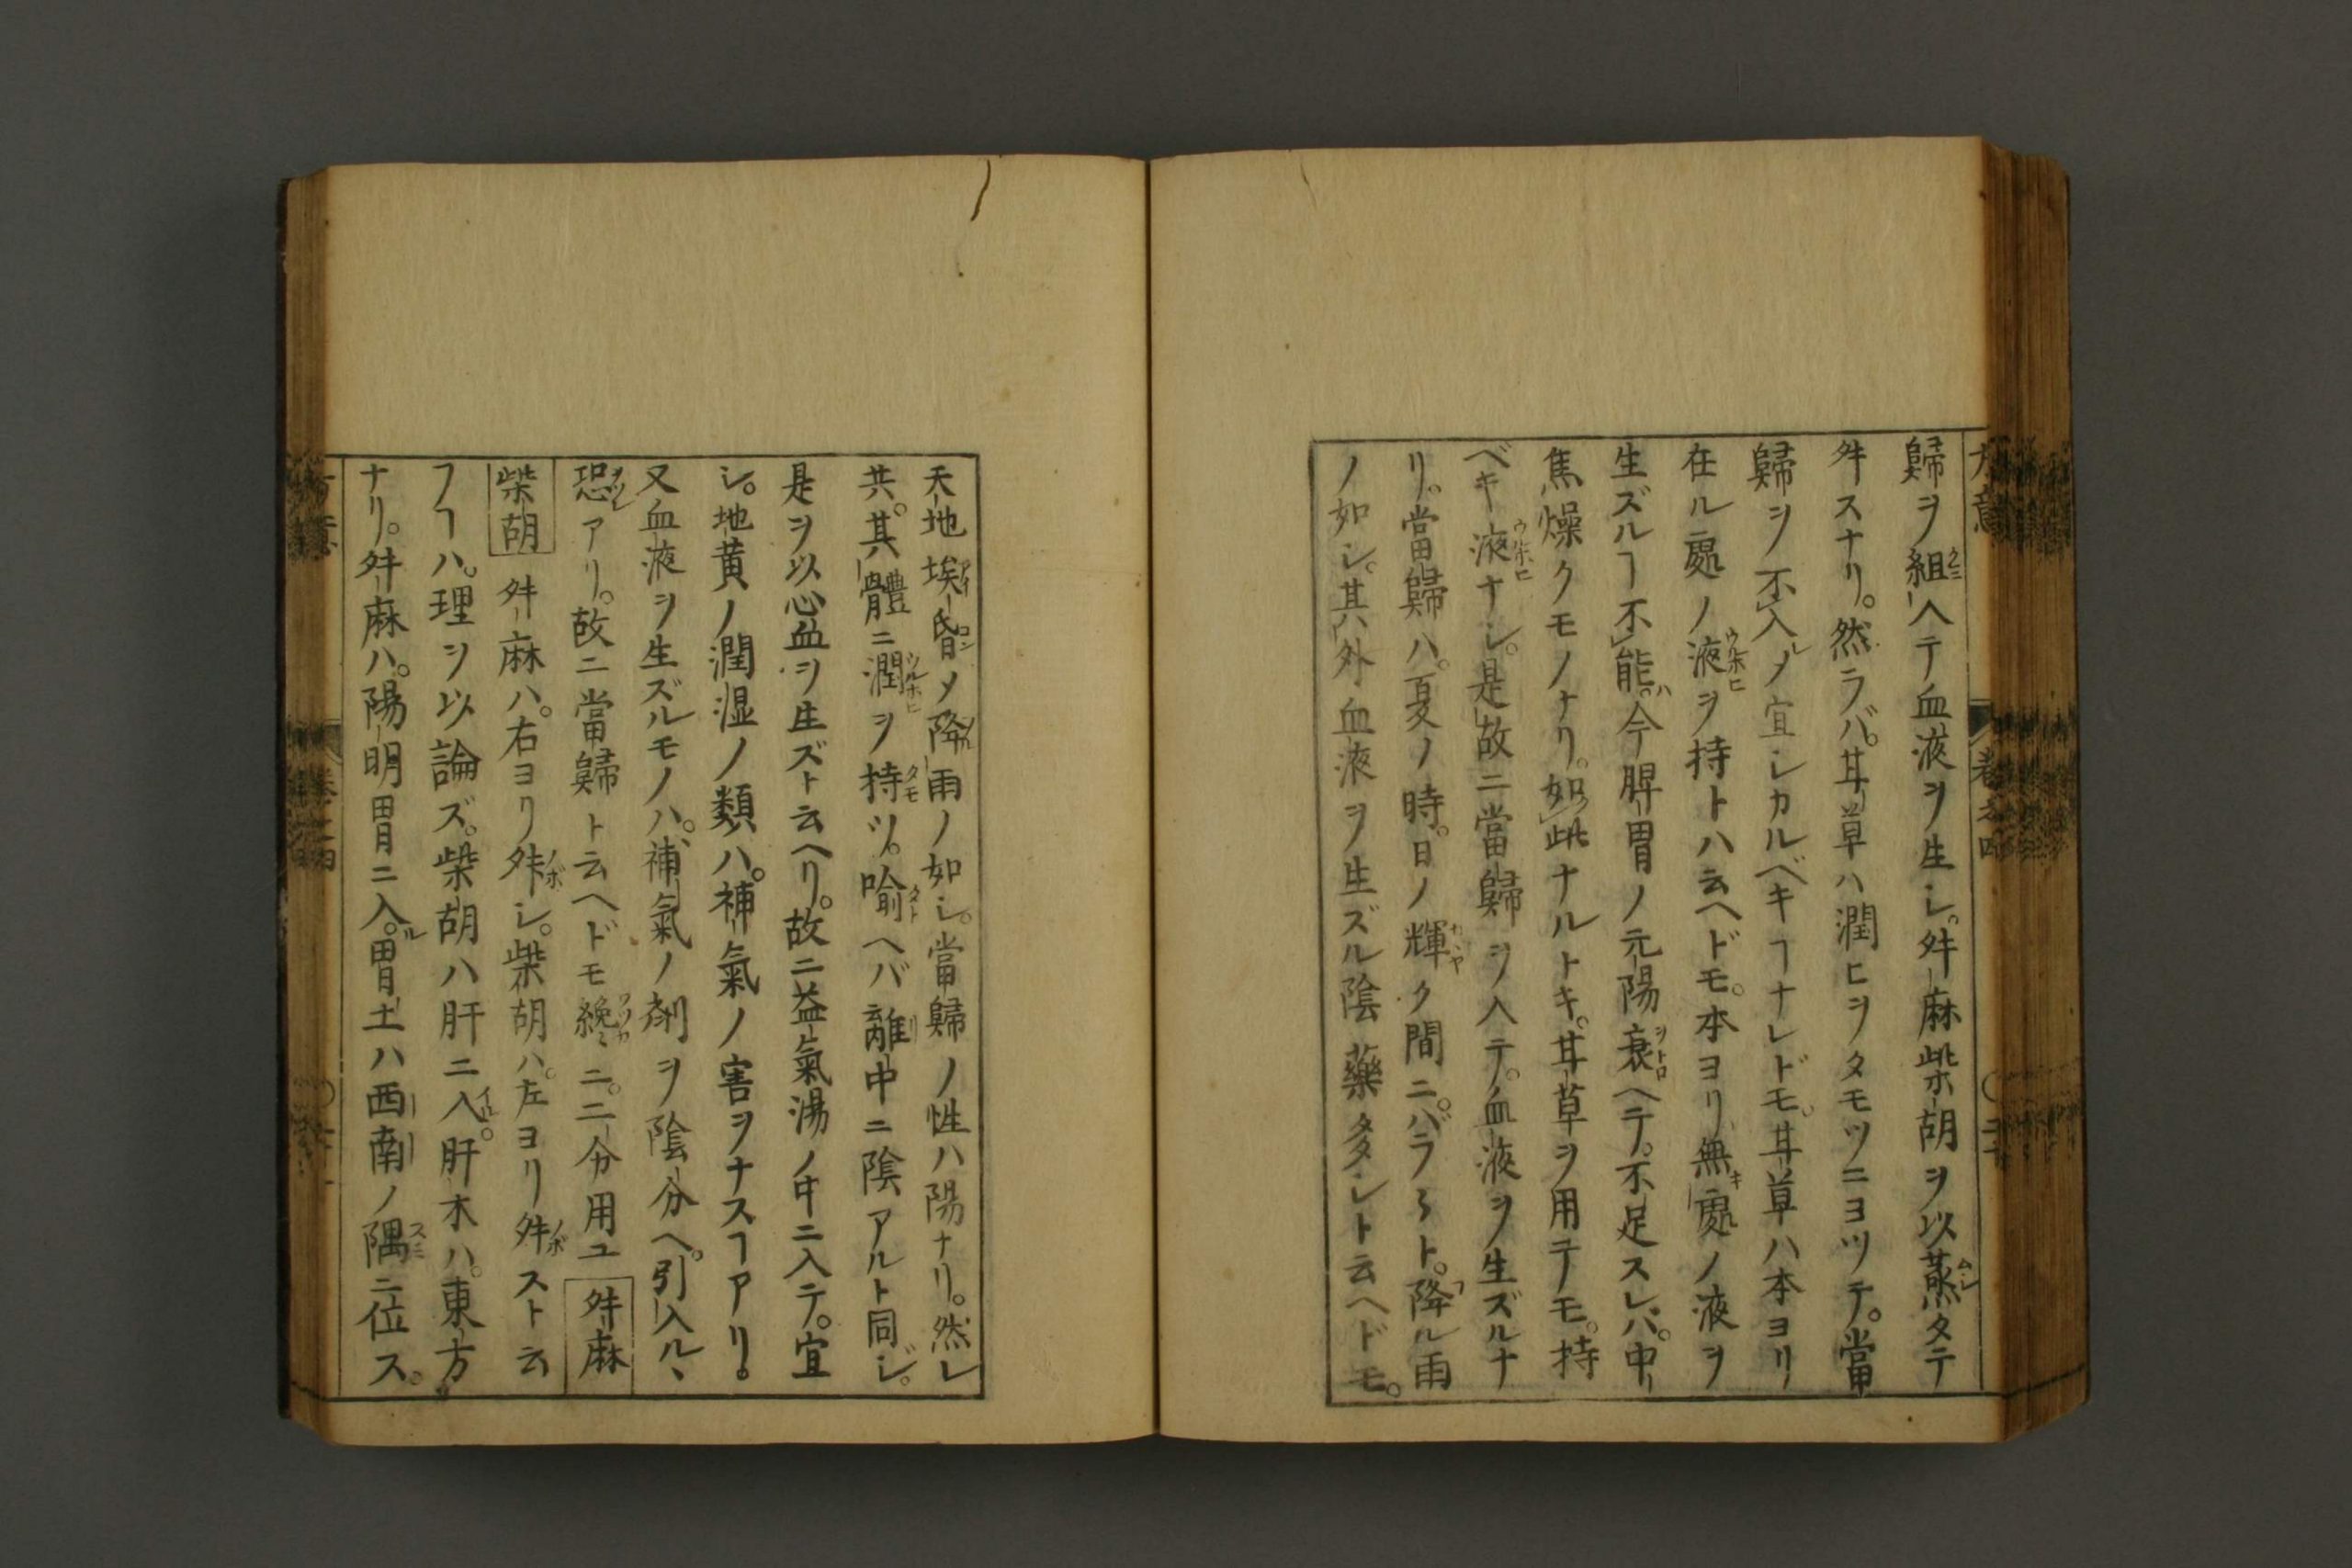 歸ヲ組ヘテ血液ヲ生シ。升麻柴胡ヲ以蒸タテ
升スナリ。然ラバ。甘草ハ潤ヒヲタモツニヨツテ。當
歸ヲ不入ノ宜シカルベキヿナレドモ。甘草ハ本ヨリ
在ル處ノ液ヲ持トハ云ヘドモ。本ヨリ無處ノ液ヲ
生ズルヿ不能。今脾胃ノ元陽衰ヘテ。不足スレバ。中
焦燥クモノナリ。如此ナルトキ。甘草ヲ用テモ。持
ベキ液ナシ。是故ニ當歸ヲ入テ。血液ヲ生ズルナ
リ。當歸ハ。夏ノ時。日ノ輝ク間ニ。バラ〱ト。降ル雨
ノ如シ。其外血液ヲ生ズル陰藥多シト云ヘドモ。
天地埃昏メ降雨ノ如シ。當歸ノ性ハ陽ナリ。然レ
共。其體ニ潤ヲ持ツ。喩ヘバ離中ニ陰アルト同ジ。
是ヲ以心血ヲ生ズト云ヘリ。故ニ益氣湯ノ中ニ入テ。宜
シ。地黄ノ潤湿ノ類ハ。補氣ノ害ヲナスヿアリ。
又血液ヲ生ズルモノハ。補氣ノ剤ヲ陰分ヘ。引入ル丶
恐アリ。故ニ當歸ト云ヘドモ纔ニ。二分用ユ 升麻
柴胡 升麻ハ。右ヨリ升シ。柴胡ハ。左ヨリ升スト云
フヿハ。理ヲ以論ズ。柴胡ハ肝ニ入。肝木ハ。東方
ナリ。升麻ハ。陽明胃ニ入。胃土ハ西南ノ隅ニ位ス。